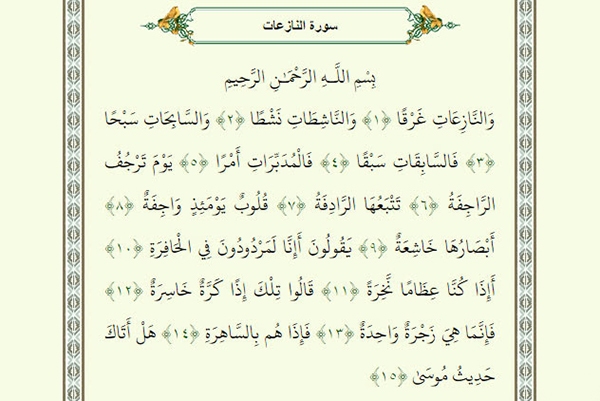 سورة النازعات
بِسْمِ اللَّـهِ الرَّحْمَـٰنِ الرَّحِيمِ
وَالنَّازِعَاتِ غَرْقًا ﴿١﴾ وَالنَّاشِطَاتِ نَشْطًا ﴿٢﴾ وَالسَّابِحَاتِ سَبْحًا
﴿٣﴾ فَالسَّابِقَاتِ سَبْقًا ﴿٤﴾ فَالْمُدَبِّرَاتِ أَمْرًا ﴿٥﴾ يَوْمَ تَرْجُفُ
الرَّاجِفَةُ ﴿٦﴾ تَتْبَعُهَا الرَّادِفَةُ ﴿٧﴾ قُلُوبٌ يَوْمَئِذٍ وَاجِفَةٌ ﴿٨﴾
أَبْصَارُهَا خَاشِعَةٌ ﴿٩﴾ يَقُولُونَ أَإِنَّا لَمَرْدُودُونَ فِي الْحَافِرَةِ ﴿١٠﴾
أَإِذَا كُنَّا عِظَامًا نَّخِرَةً ﴿١١﴾ قَالُوا تِلْكَ إِذًا كَرَّةٌ خَاسِرَةٌ ﴿١٢﴾
فَإِنَّمَا هِيَ زَجْرَةٌ وَاحِدَةٌ ﴿١٣﴾ فَإِذَا هُم بِالسَّاهِرَةِ ﴿١٤﴾ هَلْ أَتَاكَ
حَدِيثُ مُوسَىٰ ﴿١٥﴾